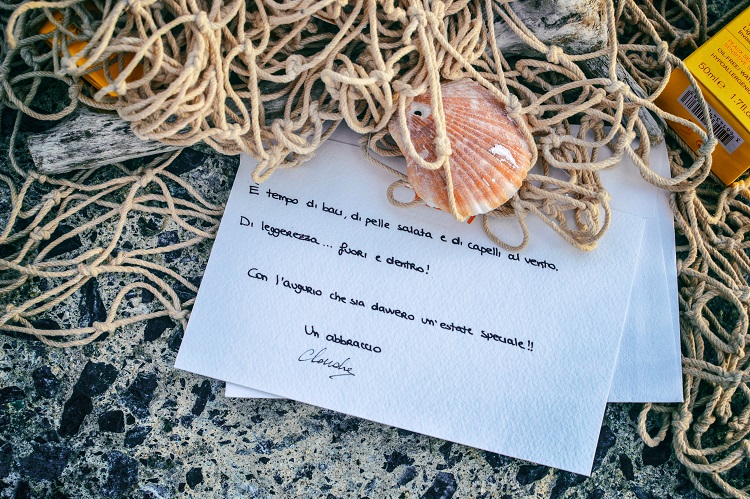 È tempo di baci, di pelle salata e di capelli al vento.
Di leggerezza... fuori e dentro!
Con l'augurio che sia davvero un'estate speciale!!
Un abbraccio
50ml